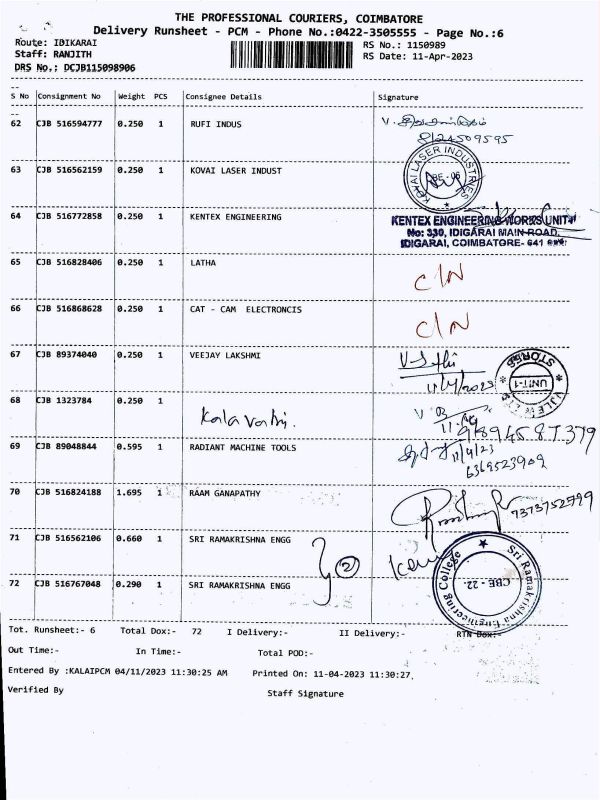 THE PROFESSIONAL COURIERS, COIMBATORE
Delivery Runsheet - PCM - Phone No.:0422-3505555 - Page No.:6
Route: IDIKARAI RS No.: 1150989
Staff: RANJITH RS Date: 11-Apr-2023
DRS No.: DCJB115098906
S No Consignment No Weight PCS Consignee Details Signature
62 CJB 516594777 0.250 1 RUFI INDUS
63 CJB 516562159 0.250 1 KOVAI LASER INDUST
KOVAI LASER INDUSTRIES
64 CJB 516772858 0.250 1 KENTEX ENGINEERING
KENTEX ENGINEERING WORKS UNIT
No: 330, IDIGARAI MAIN ROAD,
IDIGARAI, COIMBATORE- 641
65 CJB 516828406 0.250 1 LATHA C/N
66 CJB 516868628 0.250 1 CAT - CAM ELECTRONCIS C/N
67 CJB 89374040 0.250 1 VEEJAY LAKSHMI
11/4/2023
STORES
UNIT-1
68 CJB 1323784 0.250 1
Kalavathi.
69 CJB 89048844 0.595 1 RADIANT MACHINE TOOLS 11/4/23
6369523909
70 CJB 516824188 1.695 1 RAAM GANAPATHY
7373752799
71 CJB 516562106 0.660 1 SRI RAMAKRISHNA ENGG
2
Sri Ramakrishna Engineering College
CBE - 22
72 CJB 516767048 0.290 1 SRI RAMAKRISHNA ENGG
Tot. Runsheet:- 6 Total Dox:- 72 I Delivery:- II Delivery:- RTN Dox:-
Out Time:- In Time:- Total POD:-
Entered By :KALAIPCM 04/11/2023 11:30:25 AM Printed On: 11-04-2023 11:30:27
Verified By Staff Signature